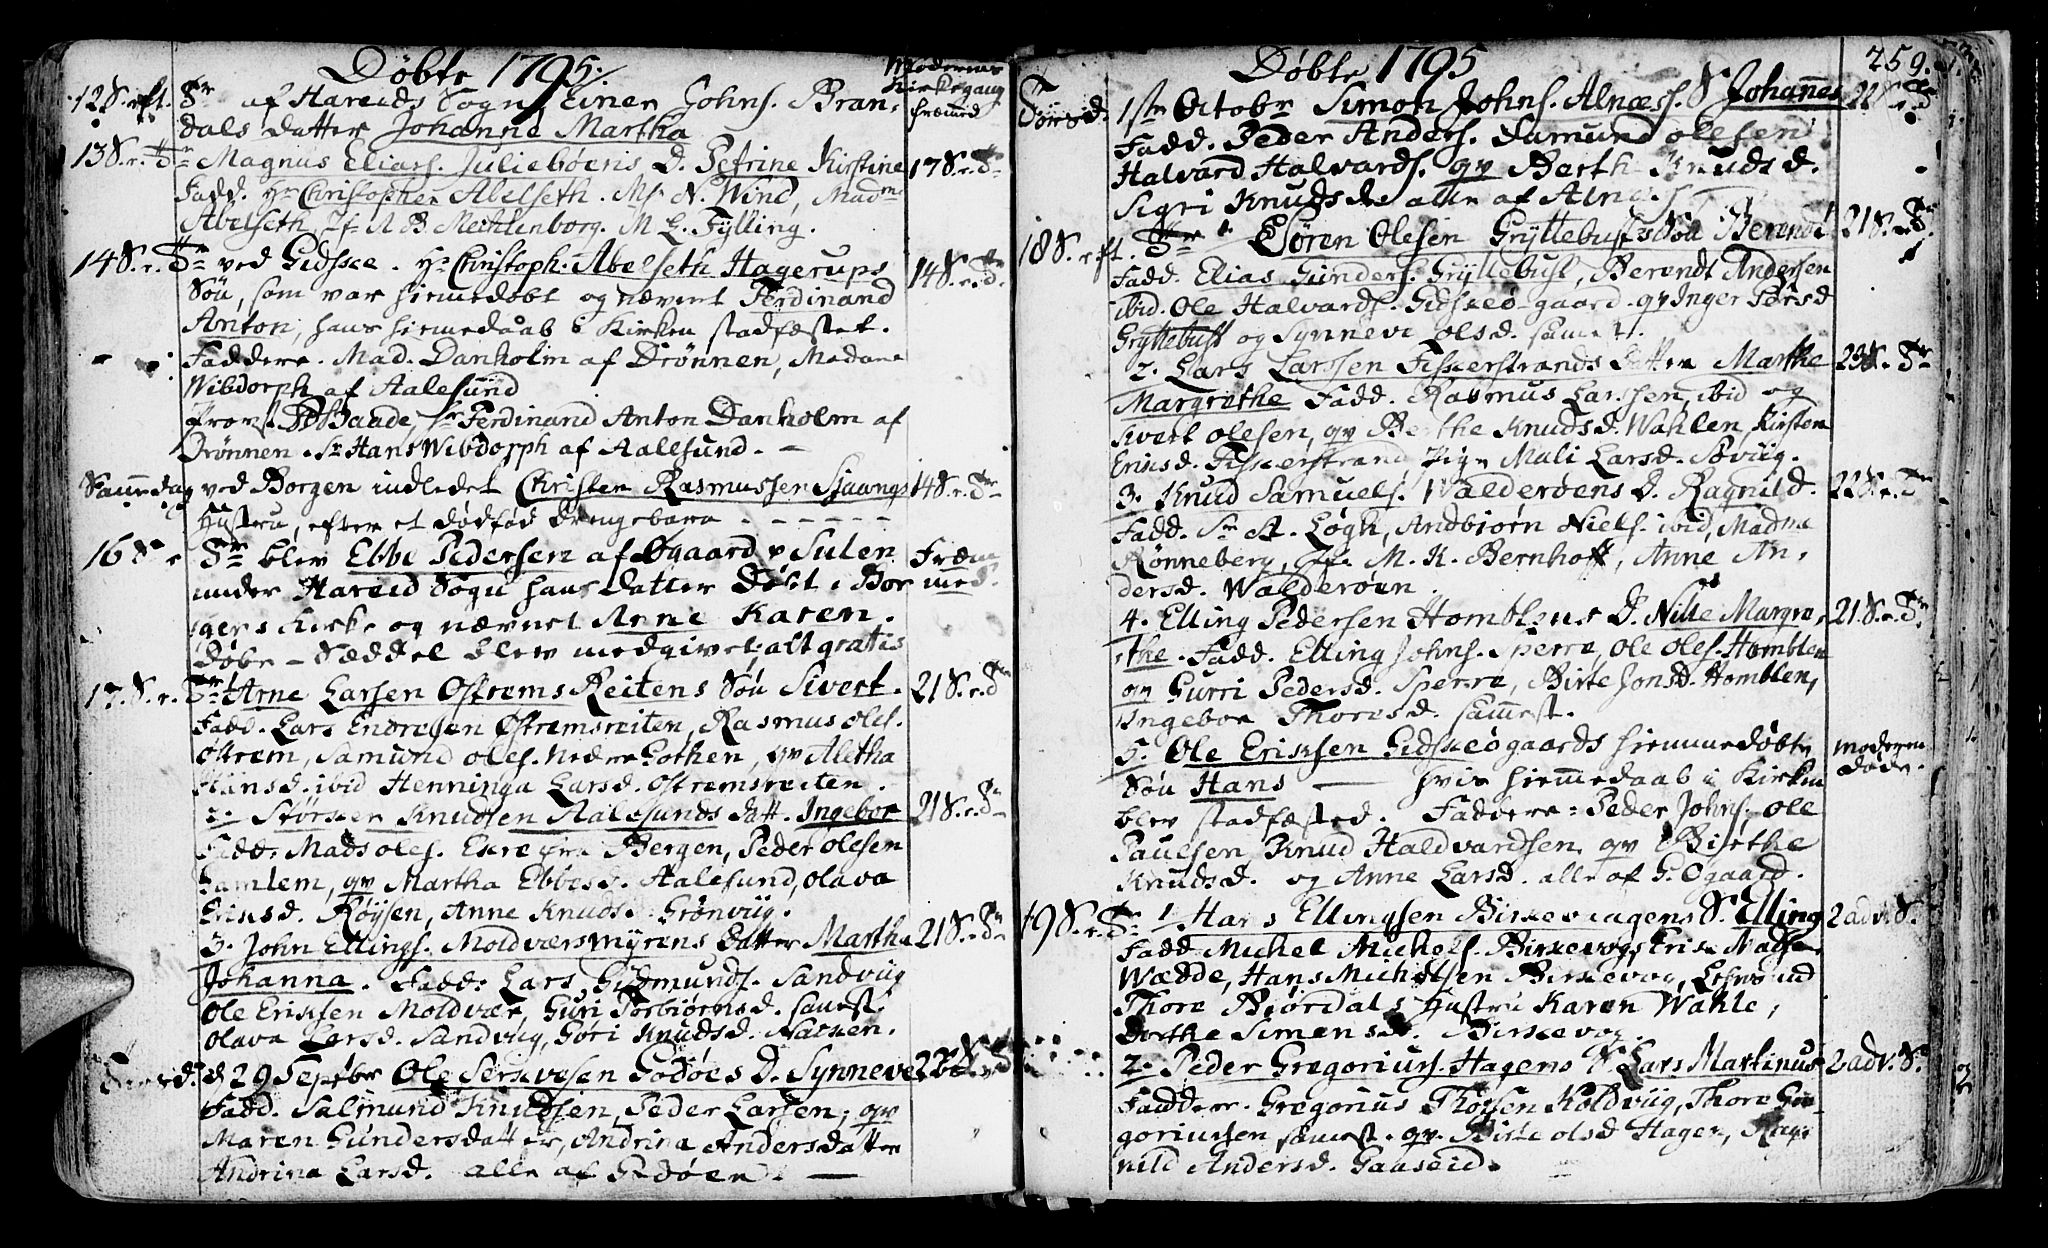 Døbte 1795.
Moderens Kirkegang
12 S. eft. Tr. af Hareids Sogn Einer Johns. Bran-
fremmed
dals datter Johanne Martha
13 S. e. Tr. Magnus Eliass. Juliebøens D. Petrine Kirstine 17 S. e. Tr.
Fadd. Hr Christopher Abelseth. Ms. N. Wind, Madme
Abelseth, Jf. A B Mechlenborg. M. L. Fylling.
14 S. e. Tr. ved Gidske. Hr Christoph. Abelseth Hagerups 14 S. e. Tr.
Søn, som var hiemedøbt og nævnt Ferdinand
Anton, hans hiemedaab i Kirken stadfæstet.
Faddere. Mad. Danholm af Drønnen, Madame
Wibdorph af Aalesund
Provst Baade, Sr Ferdinand Anton Danholm af
Drønnen. Sr Hans Wibdorph af Aalesund. -
Samme dag ved Borgen indledet Christen Rasmussen Sjaangs 14 S. e. Tr.
Hustru, efter et dødfød drengebarn - - - - - -
16 S. e Tr. blev Ebbe Pedersen af Øgaard p Sulen Frem-
under Hareid Sogn hans datter døbt i Bor- med.
gens Kirke og nævnet Anne Karen.
Døbe-Sæddel blev medgivet: alt gratis
17. S. e. Tr. Arne Larsen Ostrems Reitens Søn Sivert. 21 S. e. Tr.
Fadd. Lars Endresen Østremsreiten, Rasmus oles.
Østrem, Samund oles. Nedre Gothen, qv Aletha
Hansd. ibid Henninga Larsd. Ostremsreiten.
2. Størker Knudsen Aalesunds datt. Ingebor 21 S. e. Tr.
Fadd. Mads oles. Bergen, Peder olesen
Gamlem, qv Martha Ebbesd. Aalesund, olava
Eriksd. Røysen, Anne Knuds. Grønviig.
3. John Ellings. Moldværsmyrens Datter Martha 21 S. e. Tr.
Johanna. Fadd: Lars Gudmunds. Sandviig
Ole Eriksen Moldvær, Guri Torbiørnsd. samest.
Olava Larsd. Sandviig, Gøri Knudsd. Natsen.
Torsd. d 29 Septbr Ole Godøes D. Synneve 22 S. e. Tr.
Fadd. Salmund Knudsen, Peder Larsen, qv
Maren Gundersdatter, Andrina Andersdatter
Andrina Larsd. alle af Godøen. -
Døbte 1795
259.
Torsd. 1ste Octobr Simon Johns. Alnæss. S Johannes 22 S. e. Tr.
Fadd. Peder Anders. Samund olesen
Halvard Halvards. qv Berth Knudsd.
Sigri Knudsd. alle af Alnæs.
18 S. eft. Tr 1. Søren Olesen Gryttebusts Søn Berendt 21 S. e. Tr.
Fadd. Elias Gunders. Gryttebust, Berendt Andersen
ibid. Ole Halvards. Gidskeøgaard. qv Inger Persd
Gryttebust og Synnevi Olsd. samest.
2. Lars Larssen Fiskerstrands datter Marthe 23 S. Tr
Margrethe Fadd. Rasmus Larssen, ibid og
Sivert Olesen, qv Berthe Knudsd. Wahlen, Kirsten
Eriksd. Fiskerstrand Pige Mali Larsd. Søviig.
3. Knud Samuels. Walderøens D. Ragnild. 22 S. e. Tr
Fadd. Sr A. Løgh, Andbiørn Niels. ibid, Madme
Rønneberg, Jf. M. K. Bernhoft, Anne An-
dersd. Walderøen.
4. Elling Pedersen Homblens D. Nille Margre- 21 S. e. Tr.
the. Fadd. Elling Johns. Sperre, Ole Oles. Homblen
qv Gurri Pedersd. Sperre, Birte Jonsd. Homblen,
Ingebor Thoresd. samest.
5. Ole Eriksen Gidskeøgaards hiemmedøbte moderen
Søn Hans - hvis hiemmedaab i Kirken døde.
blev stadfæsted. Faddere: Peder Johns. Ole
Paulsen, Knud Haldvardsen qv Birthe
Knudsd. og Anne Larsd. alle af G. Øgaard.
19 S. e. Tr. 1. Hans Ellingsen Birkevaagens S. Elling 2 adv. S.
Fadd. Michel Michels. Birkevog, Erik Mads.
Wædde, Hans Michelsen Birkevog,
Thore Biørdals Hustru Karen Wahle,
Dorthe Simensd. Birkevog.
2. Peder Gregorius. Hagens S. Lars Martinus 2 adv. S.
Faddere. Gregorius Thorsen Koldviig, Thore Gre-
goriussen samest. qv. Birte olsd Hagen, Rag-
nild Andersd. Gaaseid.